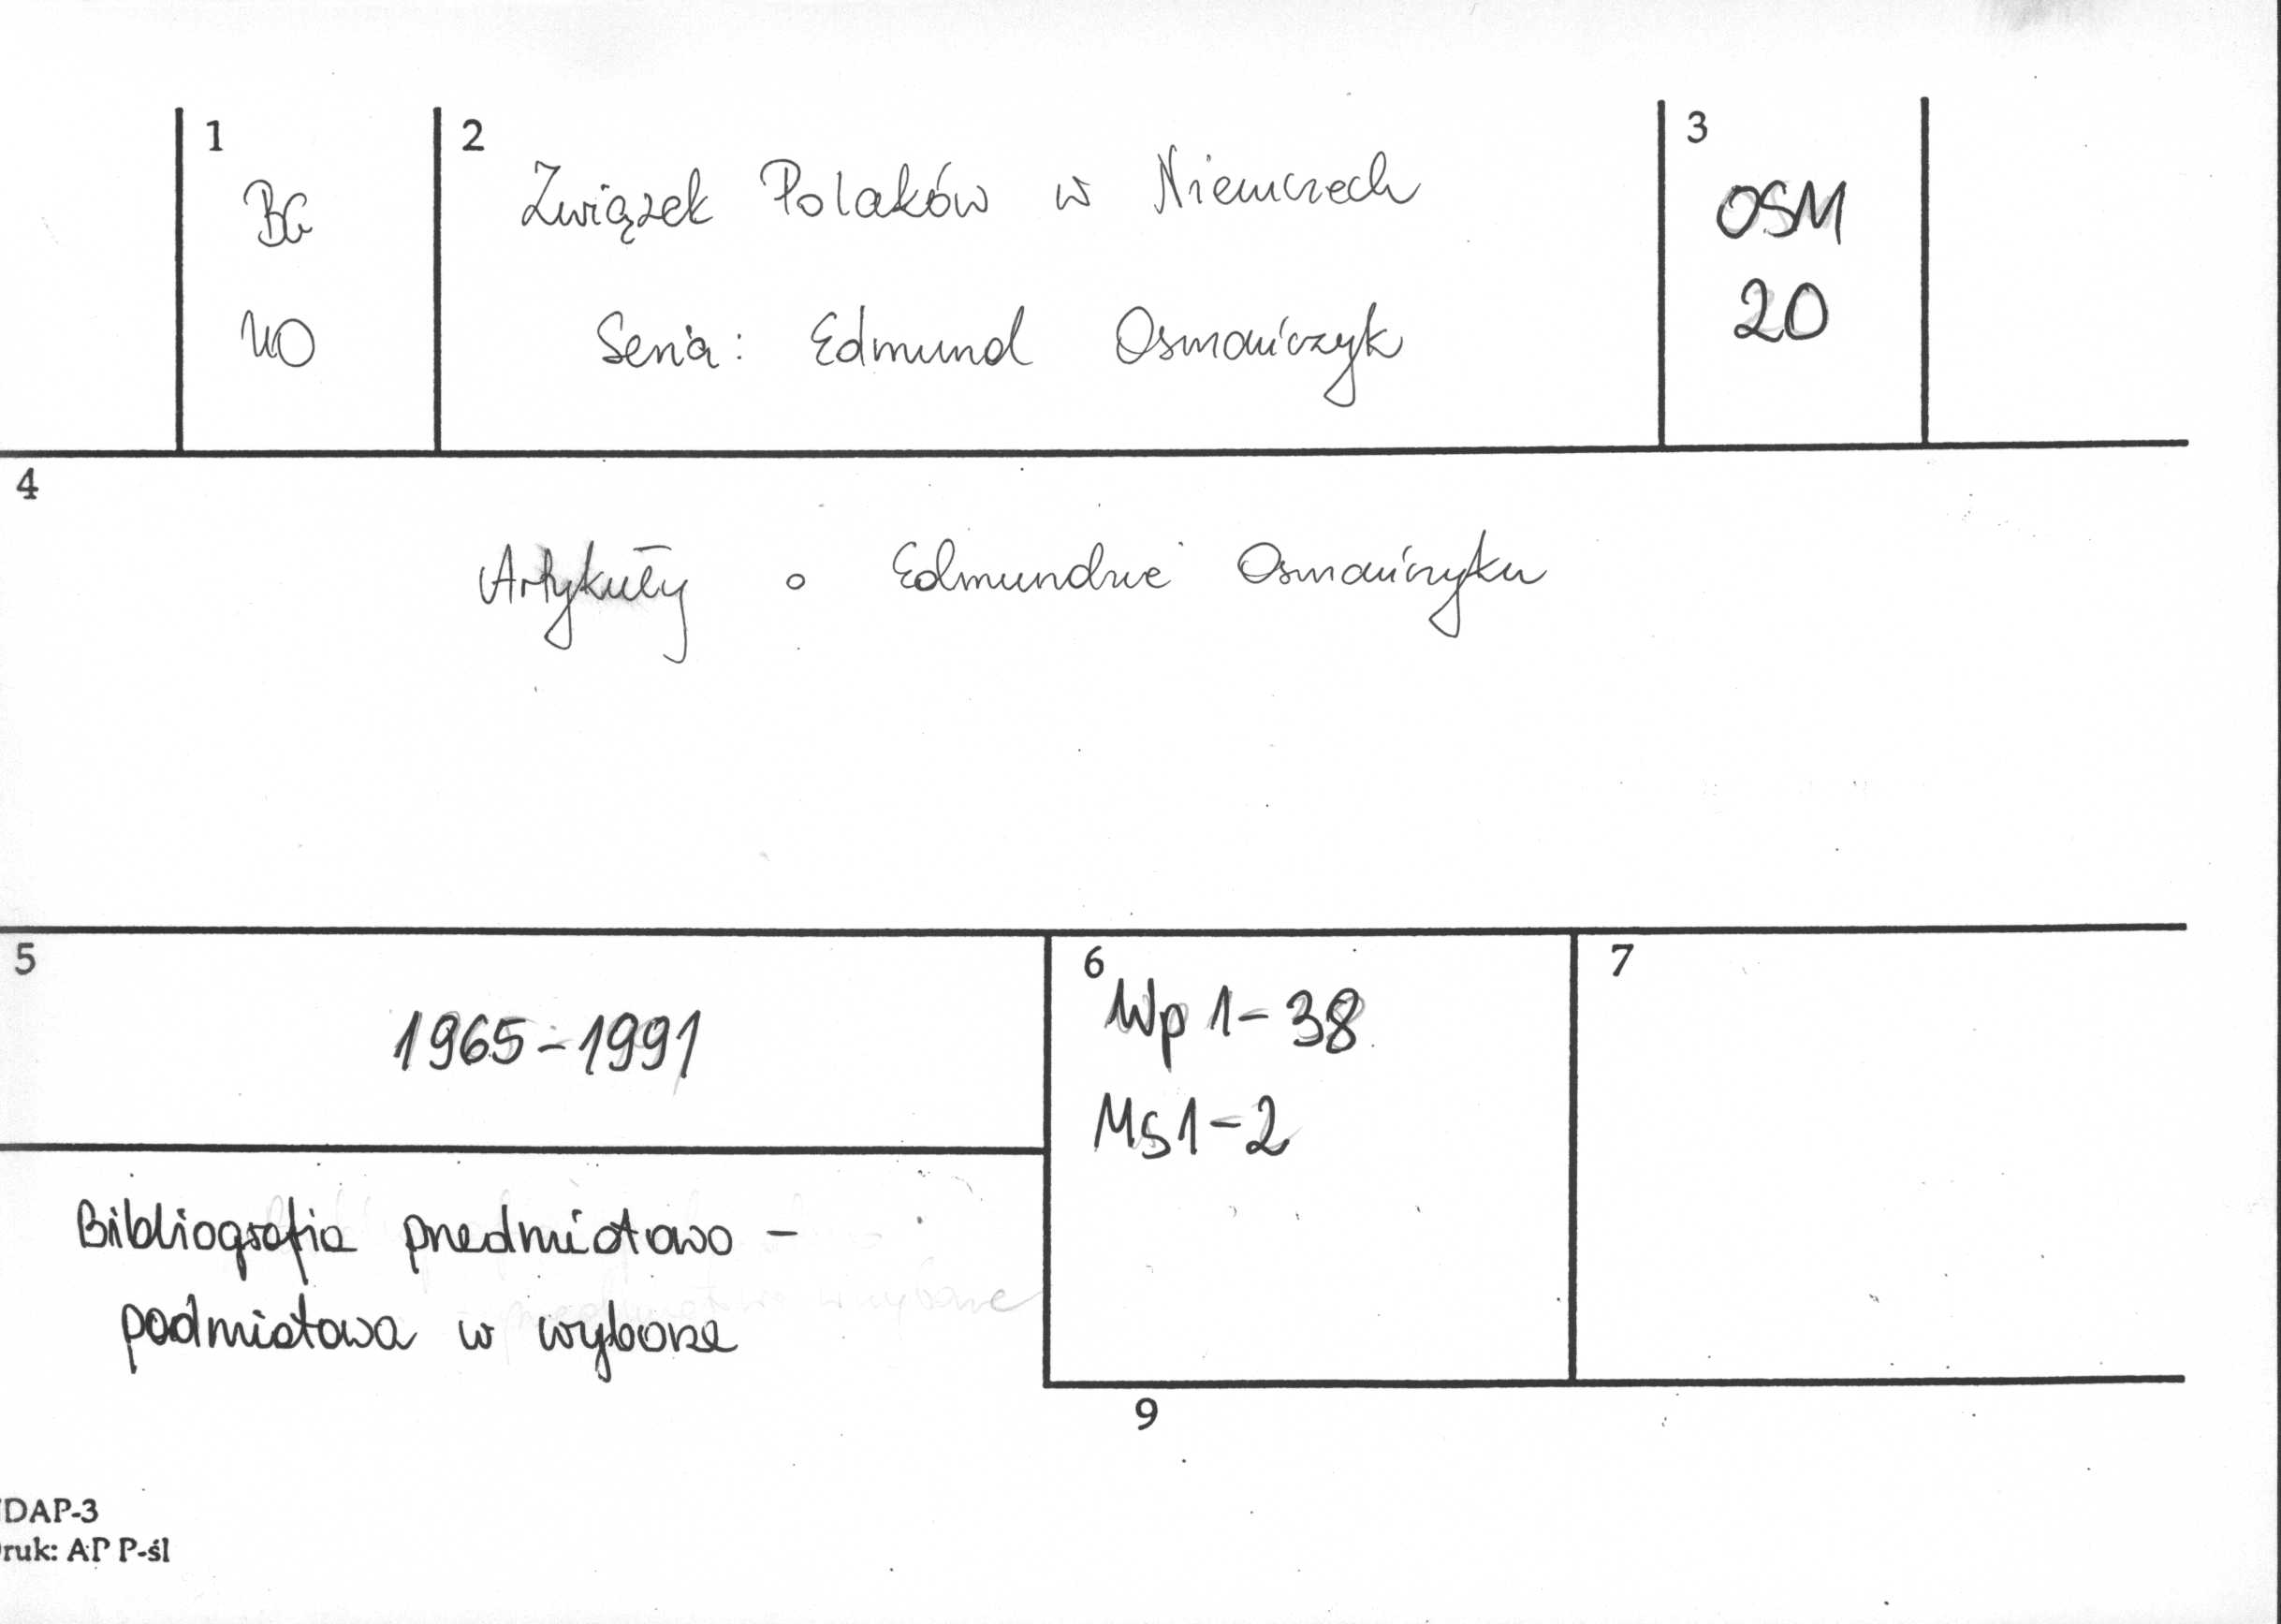 1
BG
UO
2
Związek Polaków w Niemczech
Seria: Edmund Osmańczyk
3
OSM
20
4
Artykuły o Edmundzie Osmańczyku
5
1965-1991
6
Wp 1-38
MS 1-2
7
Bibliografia przedmiotowo -
podmiotowa w wyborze
9
DAP-3
ruk: AP P-śl